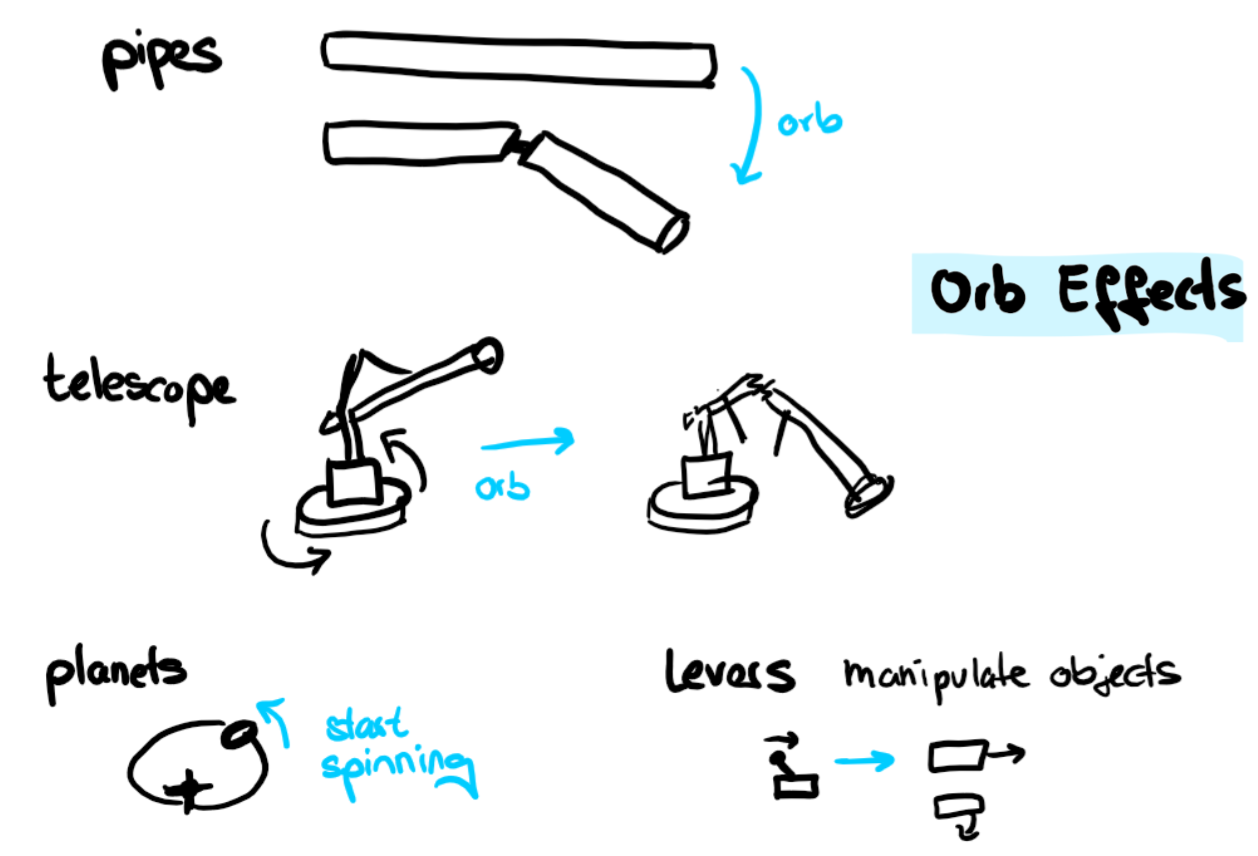 pipes
orb
Orb Effects
telescope
orb
planets
start
spinning
Levers manipulate objects